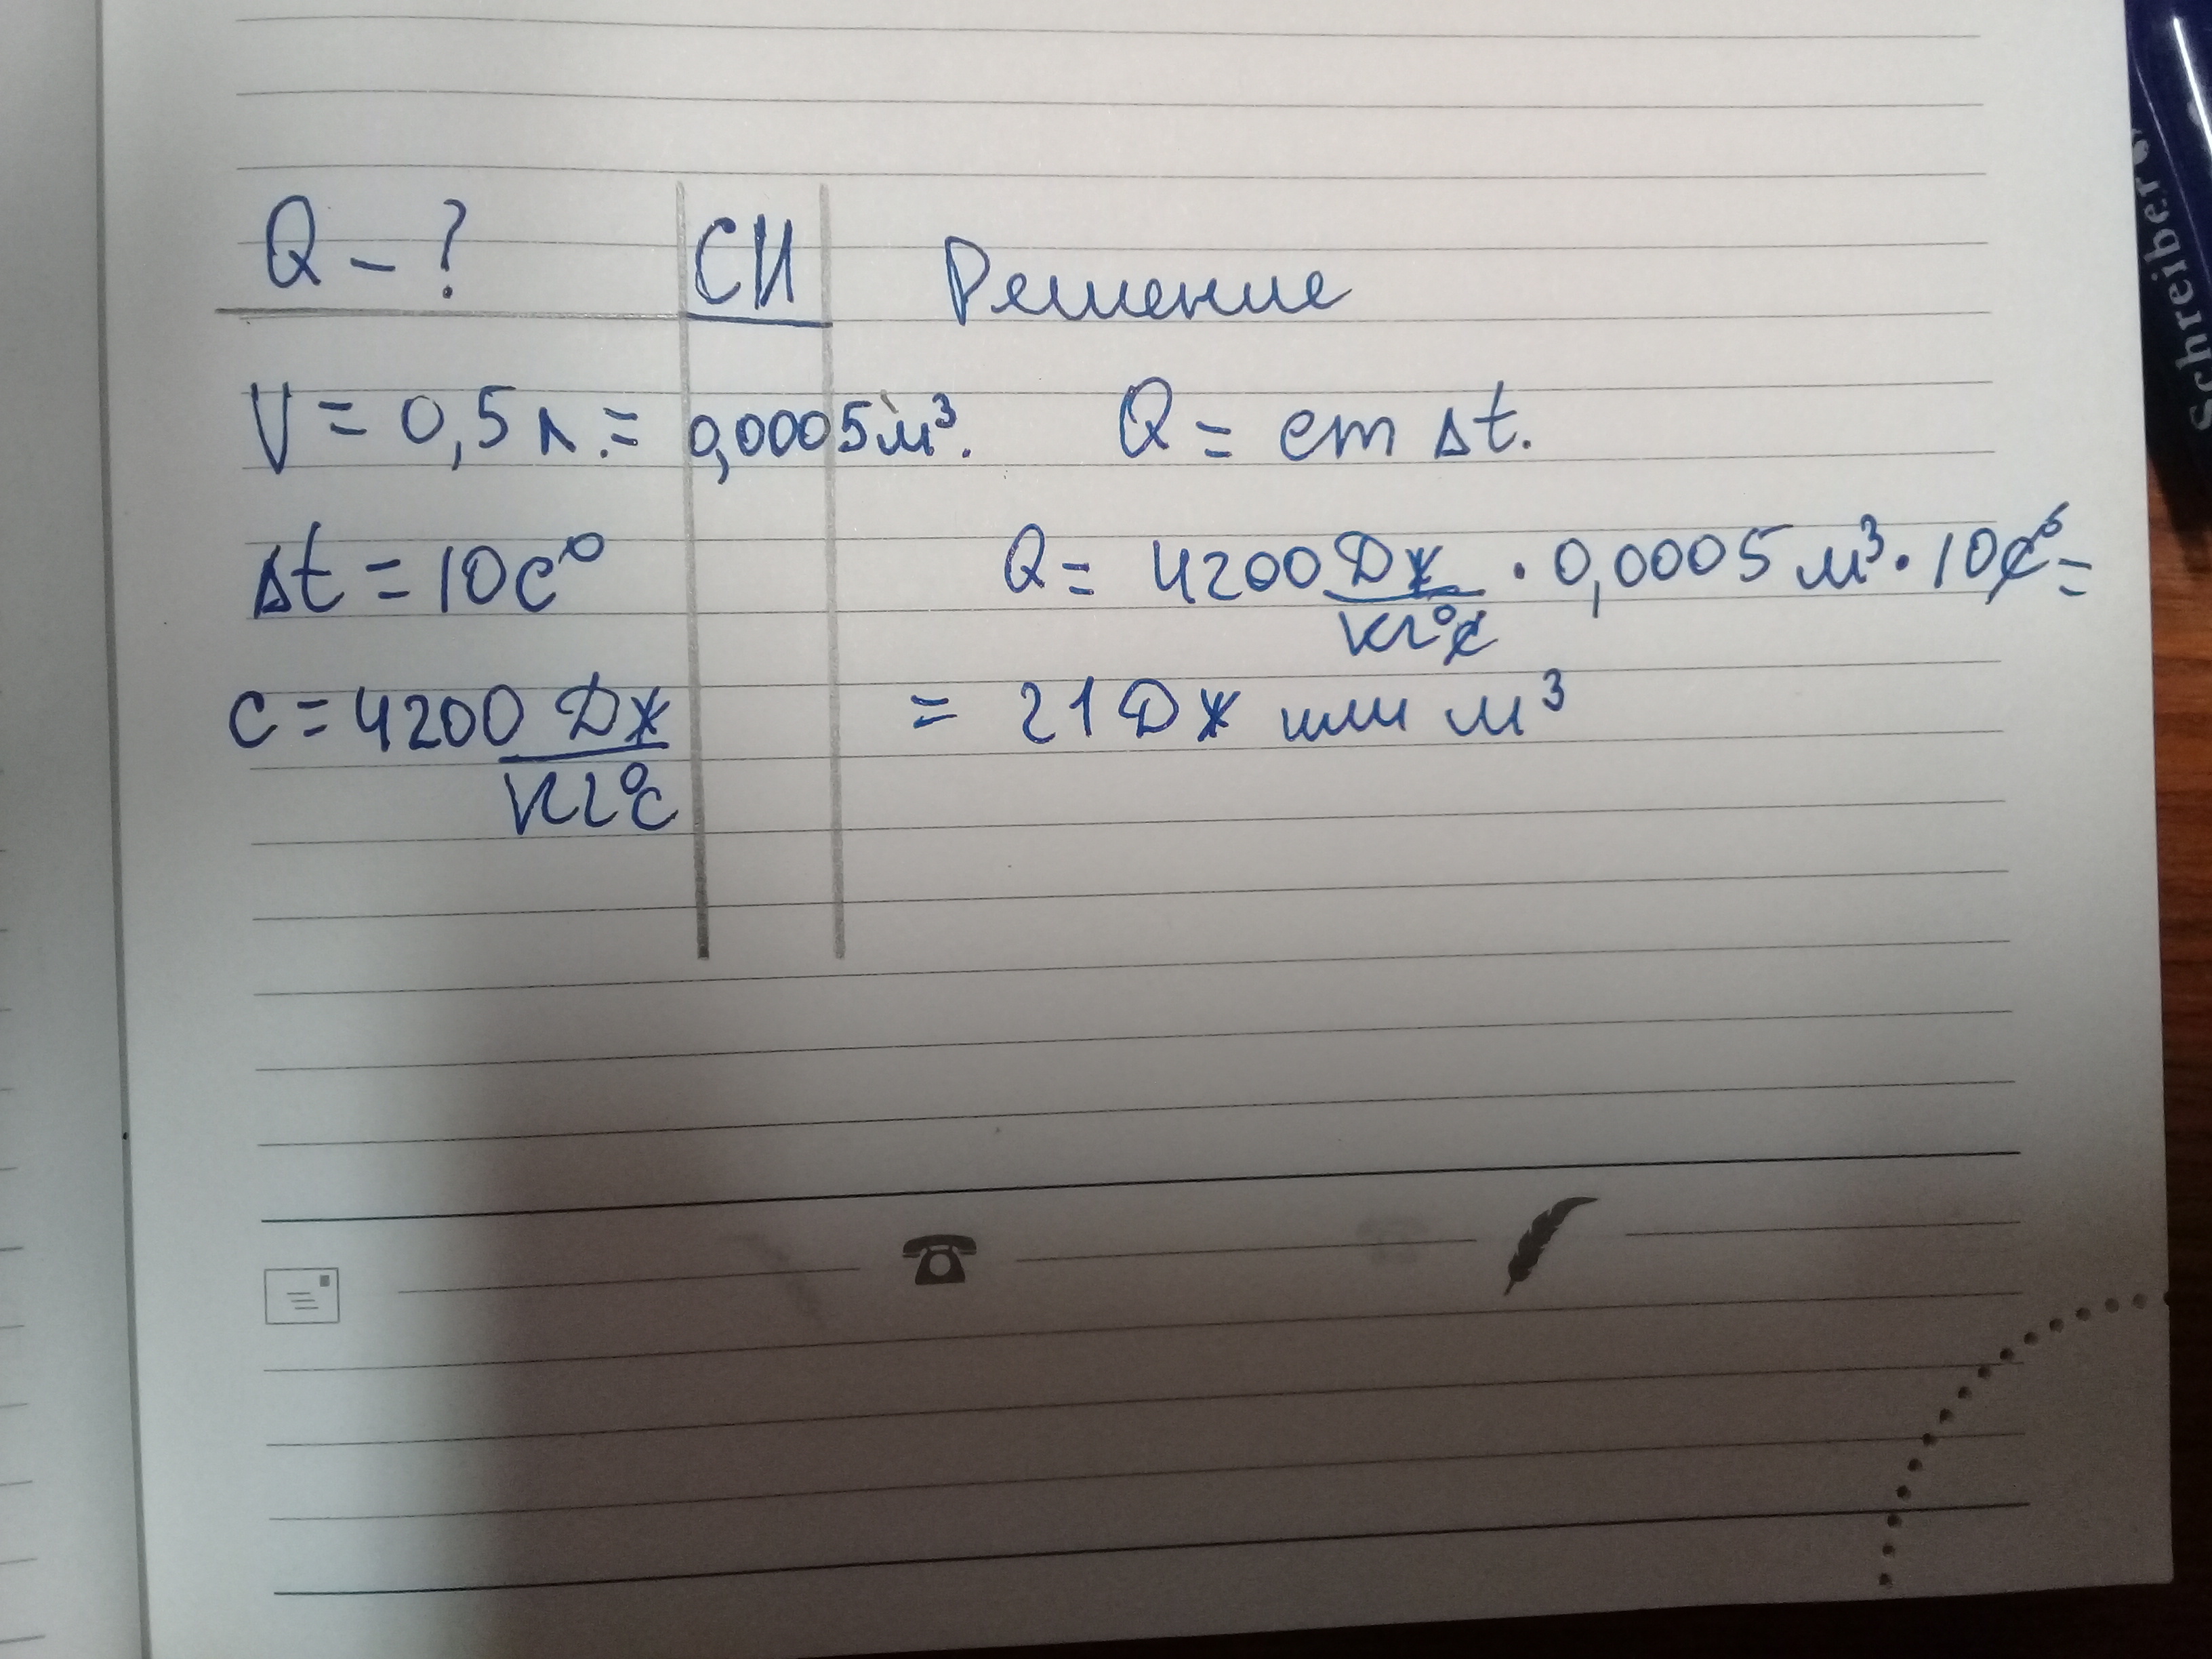 Q - ? СИ Решение
V = 0,5 л. = 0,0005 м³. Q = cm Δt.
Δt = 10 c° Q = 4200 Дж/кг°c · 0,0005 м³ · 10 c° =
c = 4200 Дж/кг°c = 21 Дж или м³
Schreiber